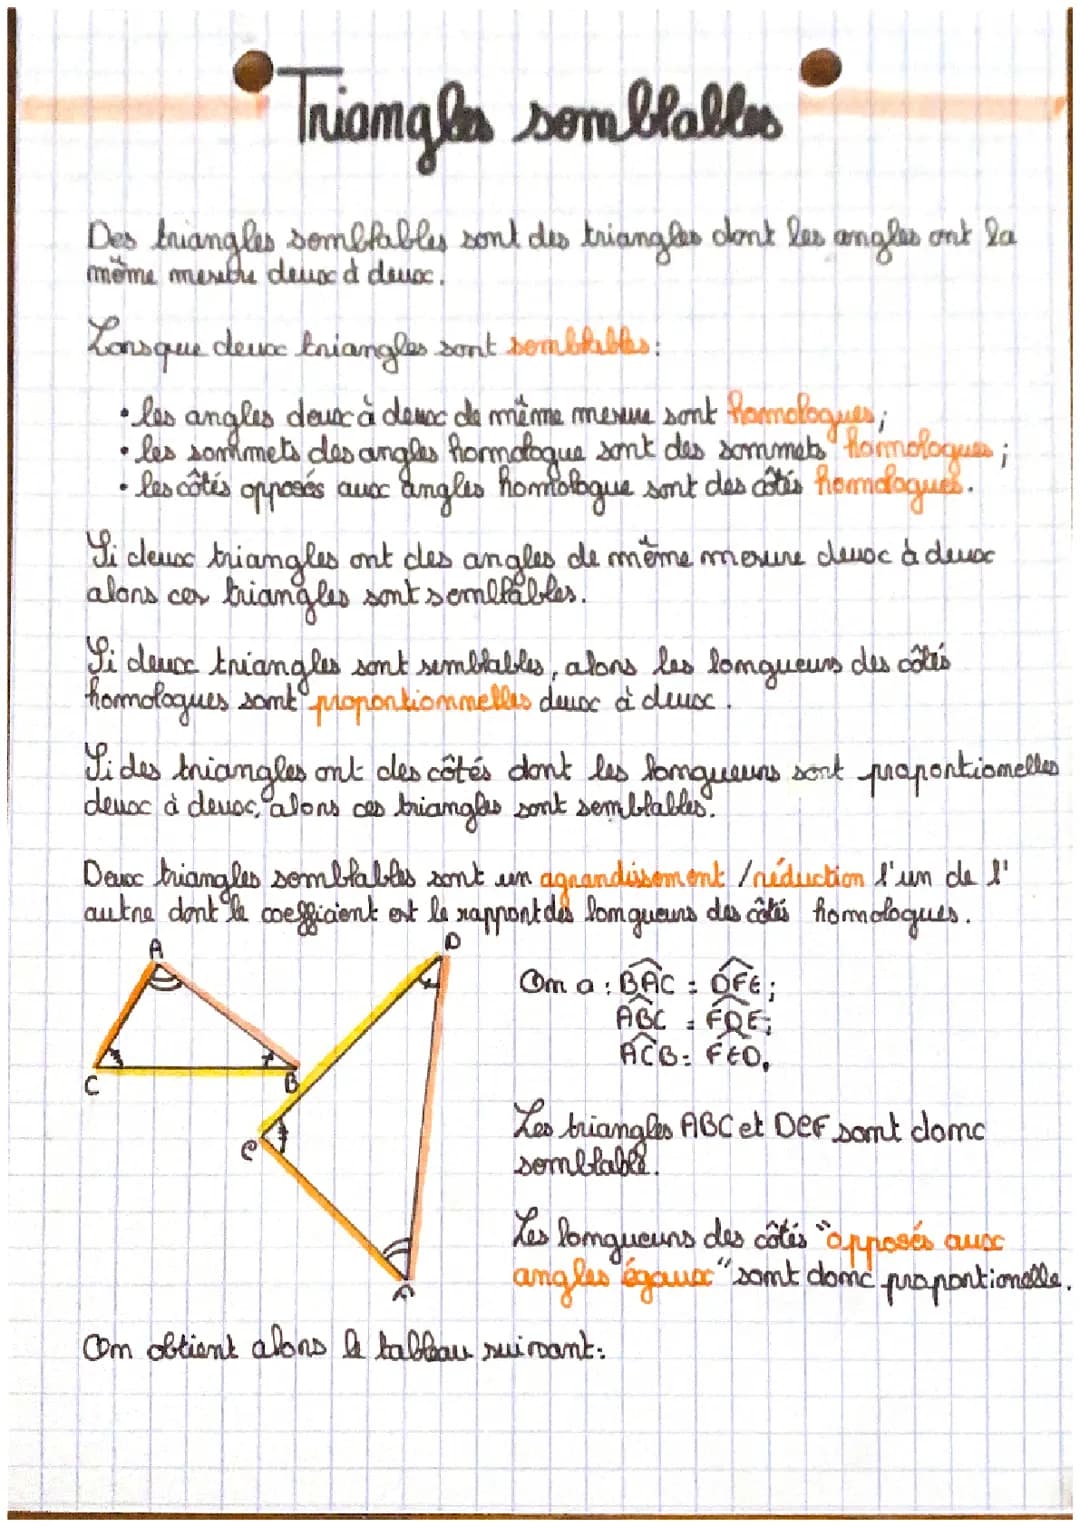 Triangles semblables
Des triangles semblables sont des triangles dont les angles ont la
même mesure deux à deux.
Lorsque deux triangles sont semblables:
• les angles deux à deux de même mesure sont homologues;
• les sommets des angles homologue sont des sommets homologues;
• les côtés opposés aux angles homologue sont des côtés homologues.
Si deux triangles ont des angles de même mesure deux à deux
alors ces triangles sont semblables.
Si deux triangles sont semblables, alors les longueurs des côtés
homologues sont proportionnelles deux à deux.
Si des triangles ont des côtés dont les longueurs sont proportionelles
deux à deux, alors ces triangles sont semblables.
Deux triangles semblables sont un agrandissement / réduction l'un de l'
autre dont le coefficient est le rapport des longueurs des côtés homologues.
A
D
C
B
e
On a : BAC = DFE;
ABC = FDE;
ACB = FED.
Les triangles ABC et DEF sont donc
semblable.
Les longueurs des côtés "opposés aux
angles égaux" sont donc proportionelle.
On obtient alors le tableau suivant: